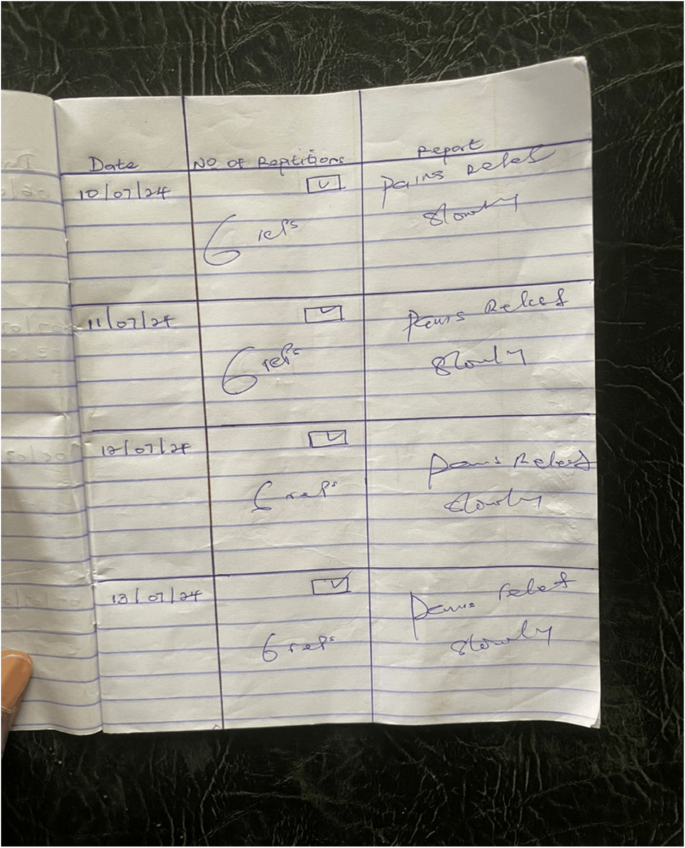 Date No of Reptitions Report
10/07/24 Pains Relef
6 reps slowly
11/07/24 Pains Relef
6 reps slowly
12/07/24 Pains Relef
6 reps slowly
13/07/24 Pains relef
6 reps slowly